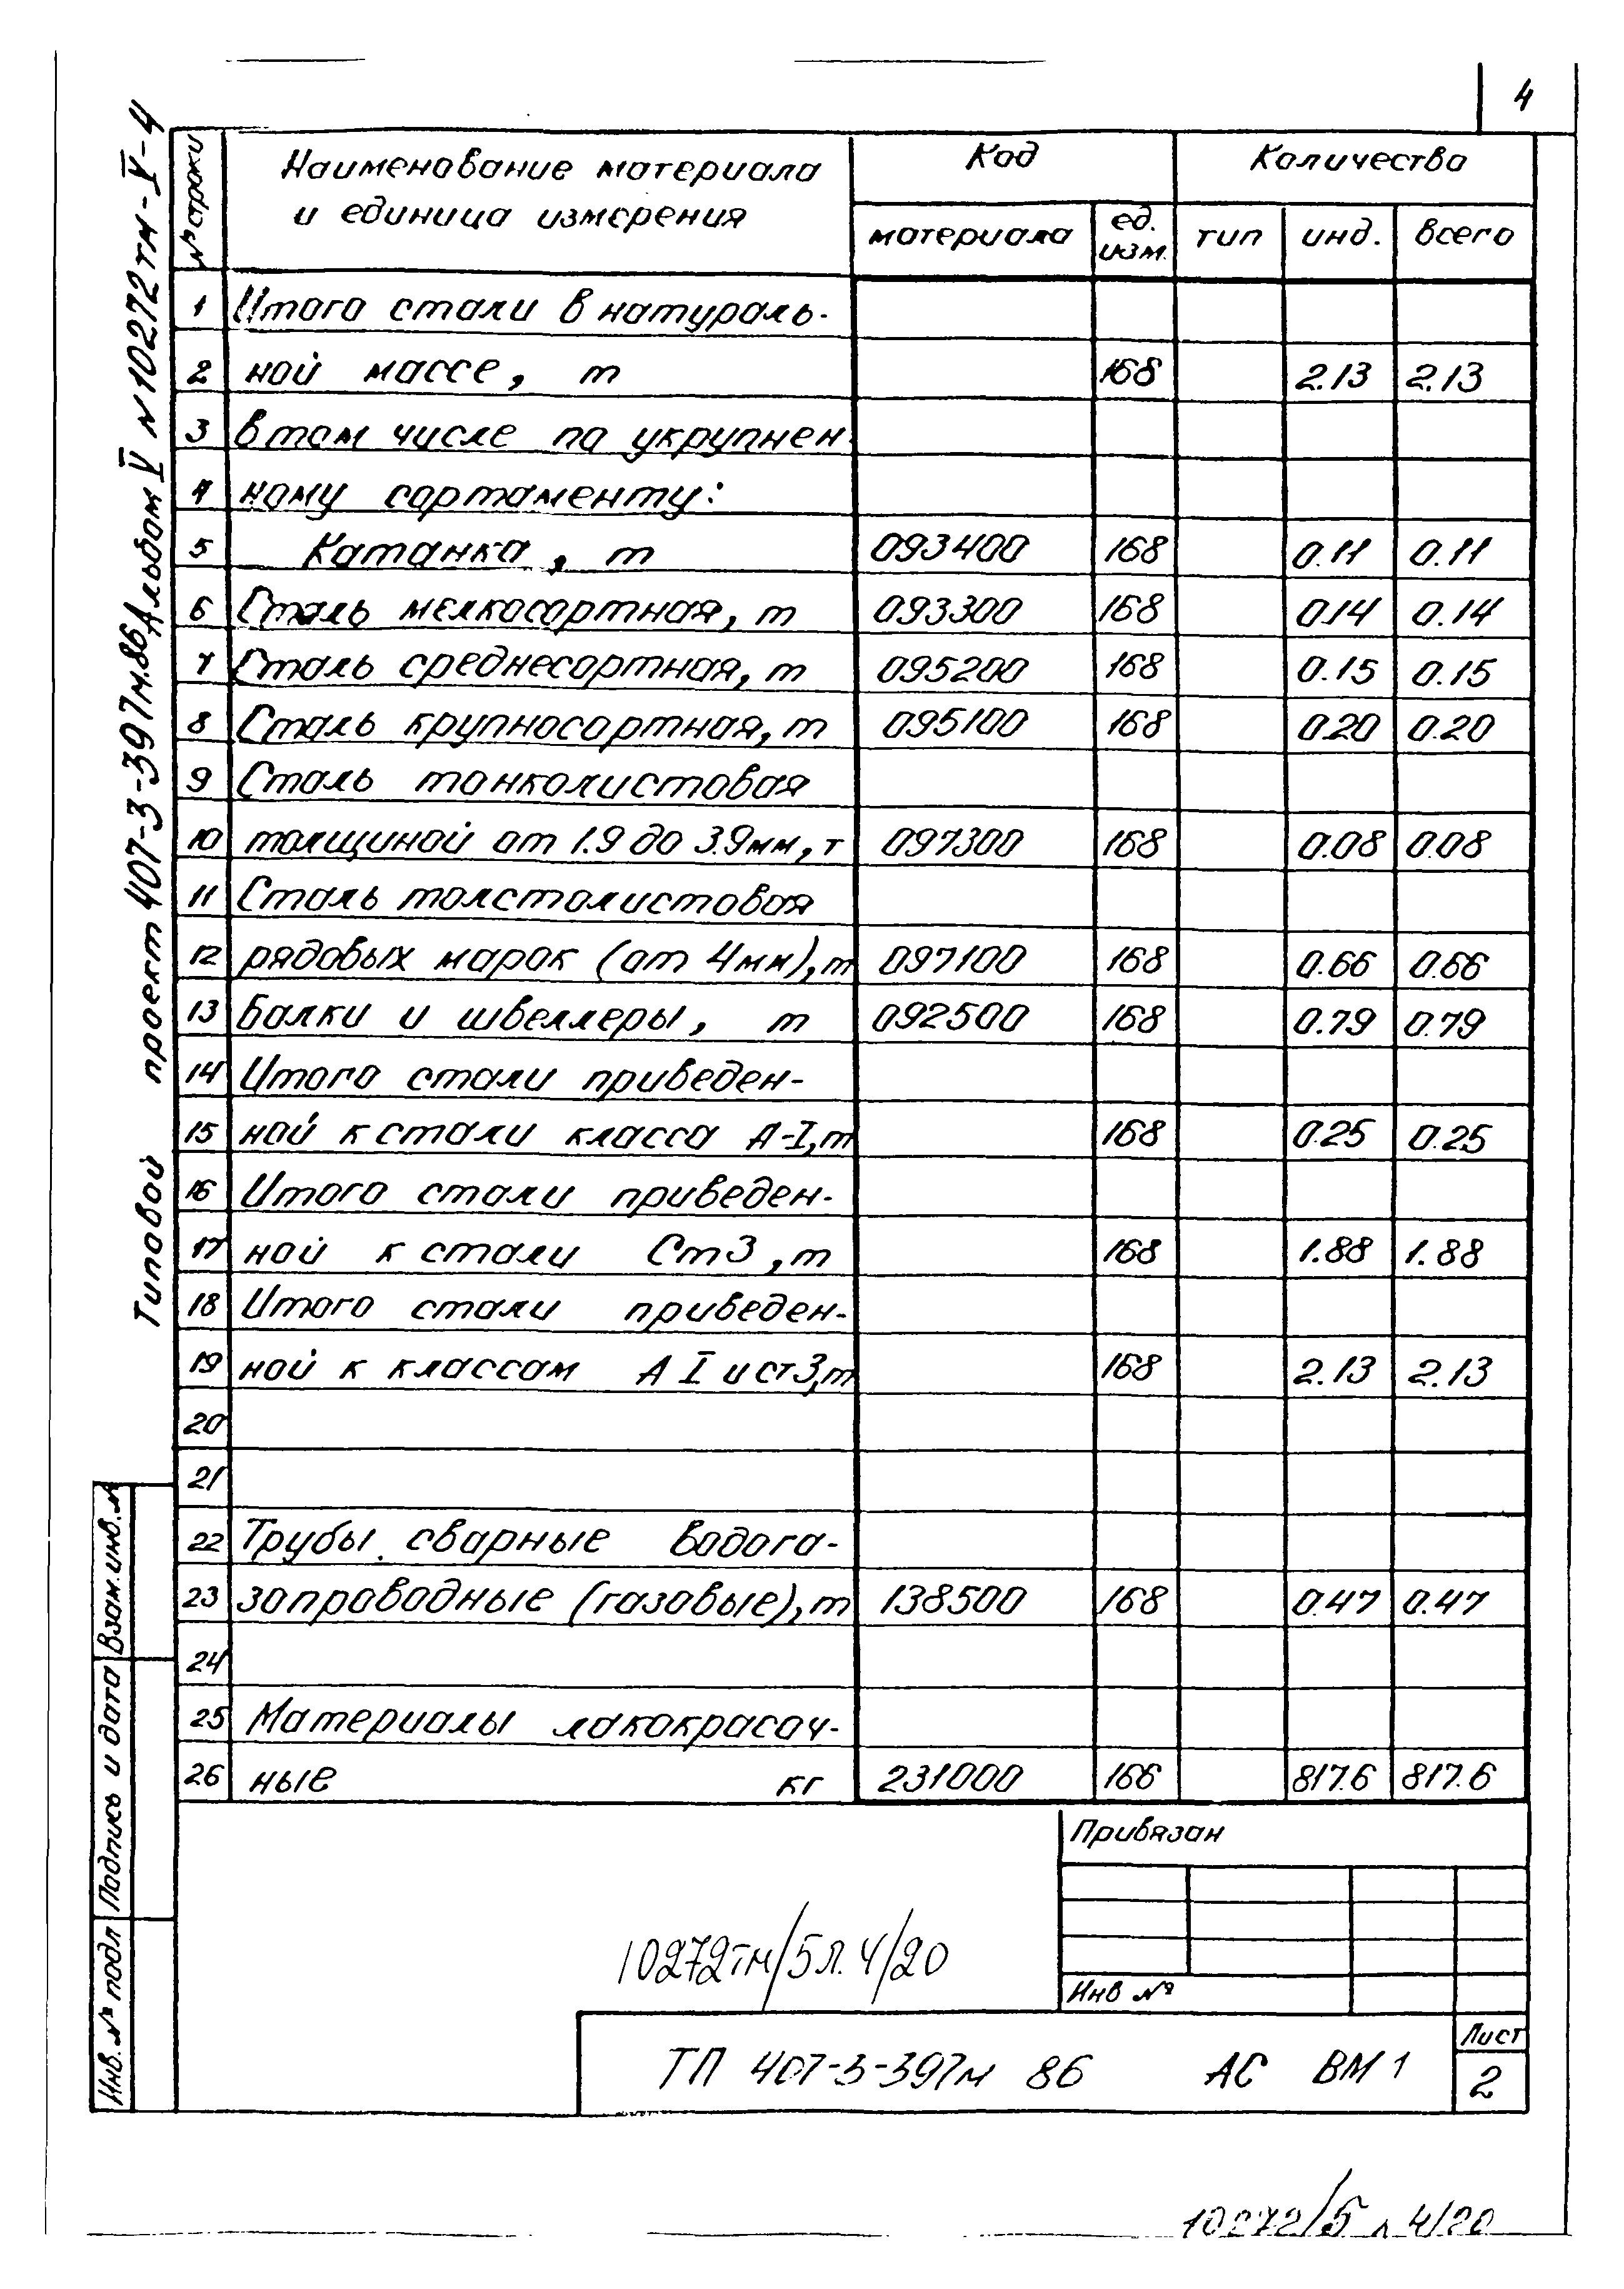 4
Типовой проект 407-3-397м.86 Альбом V № 10272тм-V-4
№ строки
Наименование материала
и единица измерения
Код
Количество
материала
ед. изм.
тип
инд.
всего
1 Итого стали в натураль-
2 ной массе, т 168 2.13 2.13
3 в том числе по укрупнен
4 ному сортаменту:
5 Катанка, т 093400 168 0.11 0.11
6 Сталь мелкосортная, т 093300 168 0.14 0.14
7 Сталь среднесортная, т 095200 168 0.15 0.15
8 Сталь крупносортная, т 095100 168 0.20 0.20
9 Сталь тонколистовая
10 толщиной от 1.9 до 3.9мм, т 097300 168 0.08 0.08
11 Сталь толстолистовая
12 рядовых марок (от 4мм), т 097100 168 0.66 0.66
13 Балки и швеллеры, т 092500 168 0.79 0.79
14 Итого стали приведен-
15 ной к стали класса А-I, т 168 0.25 0.25
16 Итого стали приведен-
17 ной к стали Ст3, т 168 1.88 1.88
18 Итого стали приведен-
19 ной к классам А I и ст3, т 168 2.13 2.13
20
21
22 Трубы сварные водога-
23 зопроводные (газовые), т 138500 168 0.47 0.47
24
25 Материалы лакокрасоч-
26 ные кг 231000 166 817.6 817.6
Взам. инв. №
Подпись и дата
Инв. № подл
Привязан
Инв №
10272тм/5 л. 4/20
ТП 407-3-397м 86 АС ВМ1
Лист
2
10272/5 л 4/20